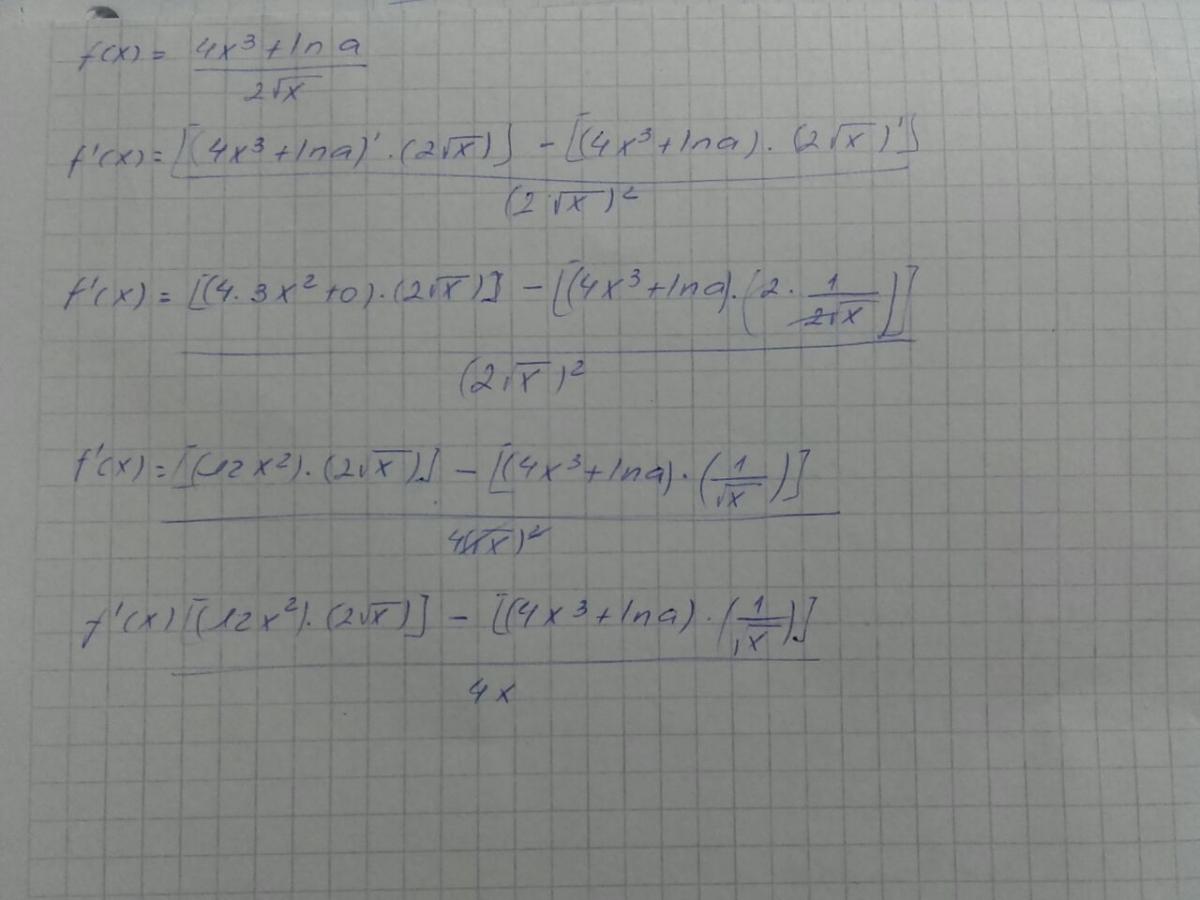 f(x) = (4x³ + ln a) / (2√x)
f'(x) = ([(4x³ + ln a)' · (2√x)] - [(4x³ + ln a) · (2√x)']) / (2√x)²
f'(x) = ([(4 · 3x² + 0) · (2√x)] - [(4x³ + ln a) · (2 · 1/(2√x))]) / (2√x)²
f'(x) = ([(12x²) · (2√x)] - [(4x³ + ln a) · (1/√x)]) / 4(√x)²
f'(x) ([(12x²) · (2√x)] - [(4x³ + ln a) · (1/√x)]) / 4x